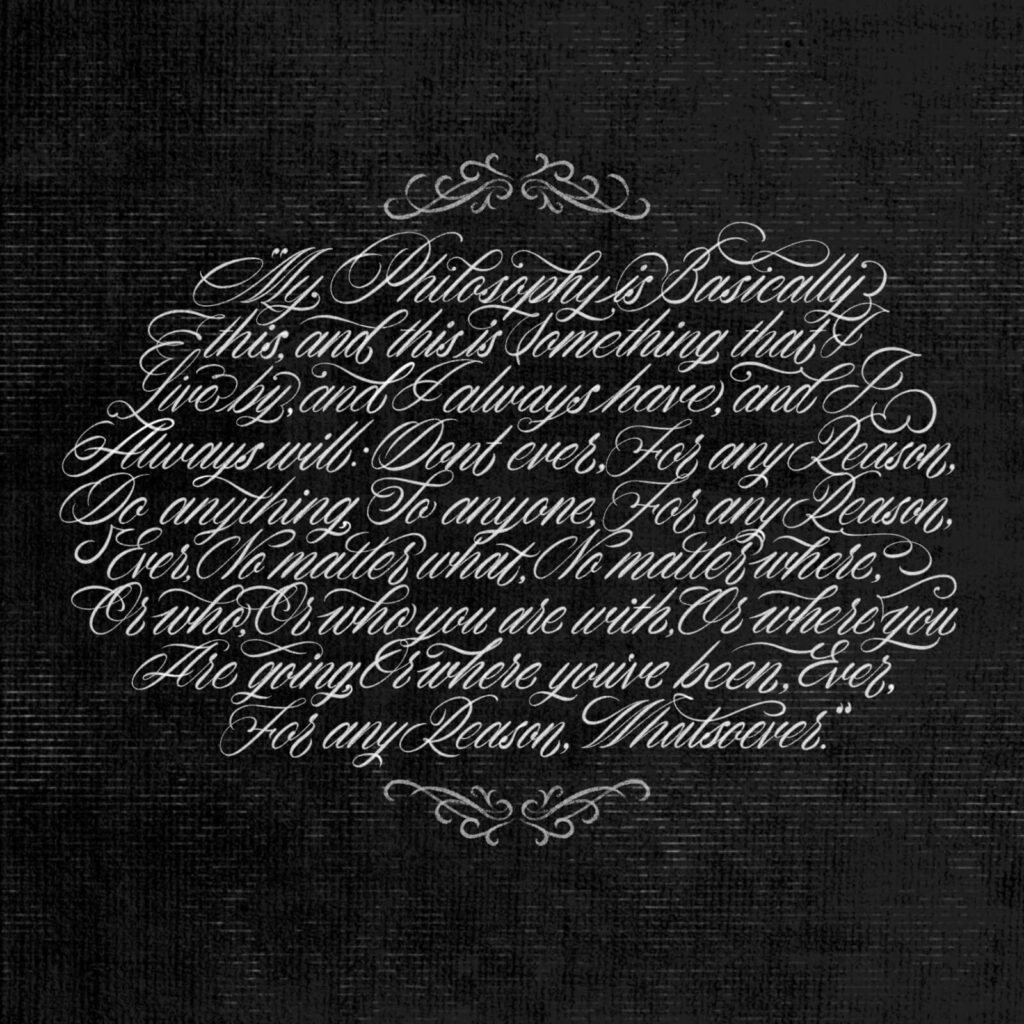 "My Philosophy is Basically
this, and this is Something that I
Live by, and I always have, and I
Always will: Dont ever, For any Reason,
Do anything, To anyone, For any Reason,
Ever, No matter what, No matter where,
Or who, Or who you are with, Or where you
Are going, Or where you've been, Ever,
For any Reason, Whatsoever."